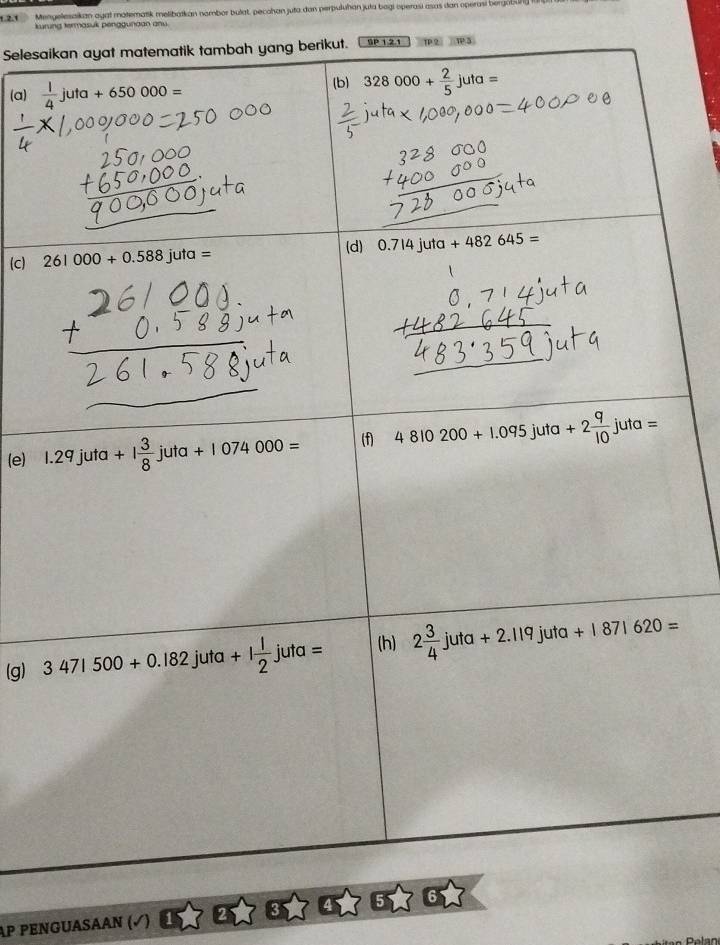 1.2.1 Menyelesaikan ayat matematik melibatkan nombor bulat, pecahan juta dan perpuluhan juta bagi operasi asas dan operasi bergabung
kurung termasuk penggunaan anu.
Selesaikan ayat matematik tambah yang berikut. SP 1.2.1 TP 2 TP 3
(a) 1/4 juta + 650 000 =
1/4 × 1,000,000 = 250 000
1
250,000
+650,000.
900,000 juta
(b) 328 000 + 2/5 juta =
2/5 juta × 1,000,000 = 400000
328 000
+400 000
728 000 juta
(c) 261 000 + 0.588 juta =
261 000.
+ 0.588 juta
261.588 juta
(d) 0.714 juta + 482 645 =
1
0.714 juta
+482 645
483.359 juta
(e) 1.29 juta + 1 3/8 juta + 1 074 000 =
(f) 4 810 200 + 1.095 juta + 2 9/10 juta =
(g) 3 471 500 + 0.182 juta + 1 1/2 juta =
(h) 2 3/4 juta + 2.119 juta + 1 871 620 =
AP PENGUASAAN (✓) 1 2 3 4 5 6